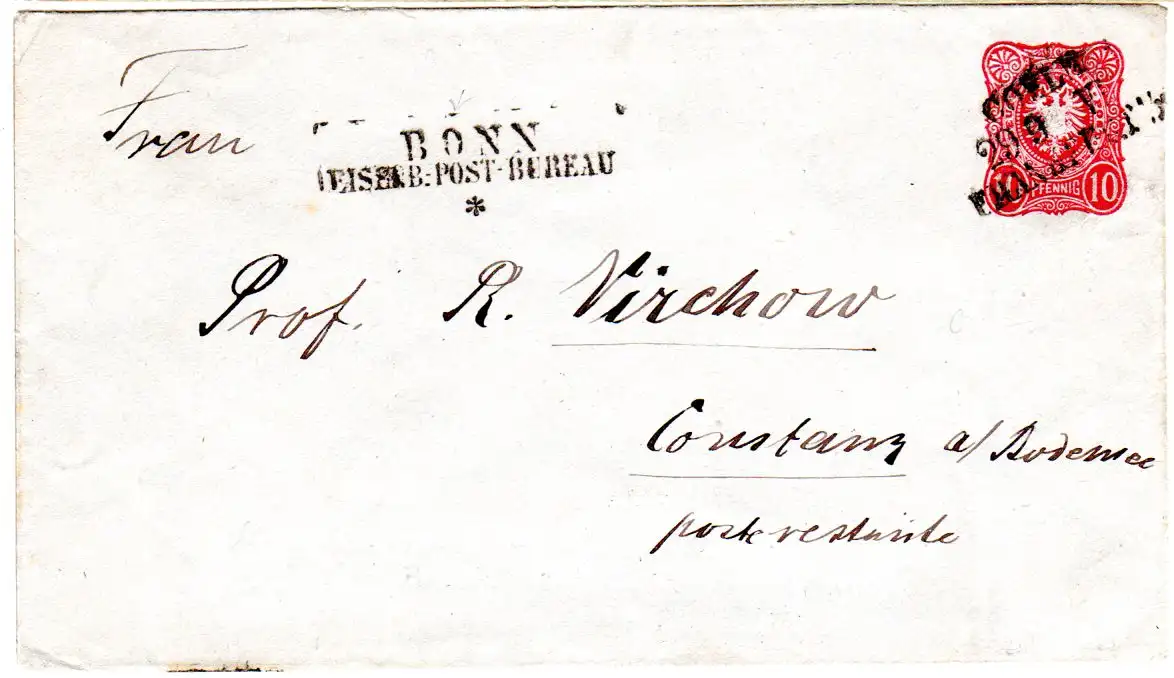 Frau
BONN
EISENB:POST-BUREAU
*
COELN
29 9
10 PFENNIG 10
Prof. R. Virchow
Constanz a/ Bodensee
poste restante